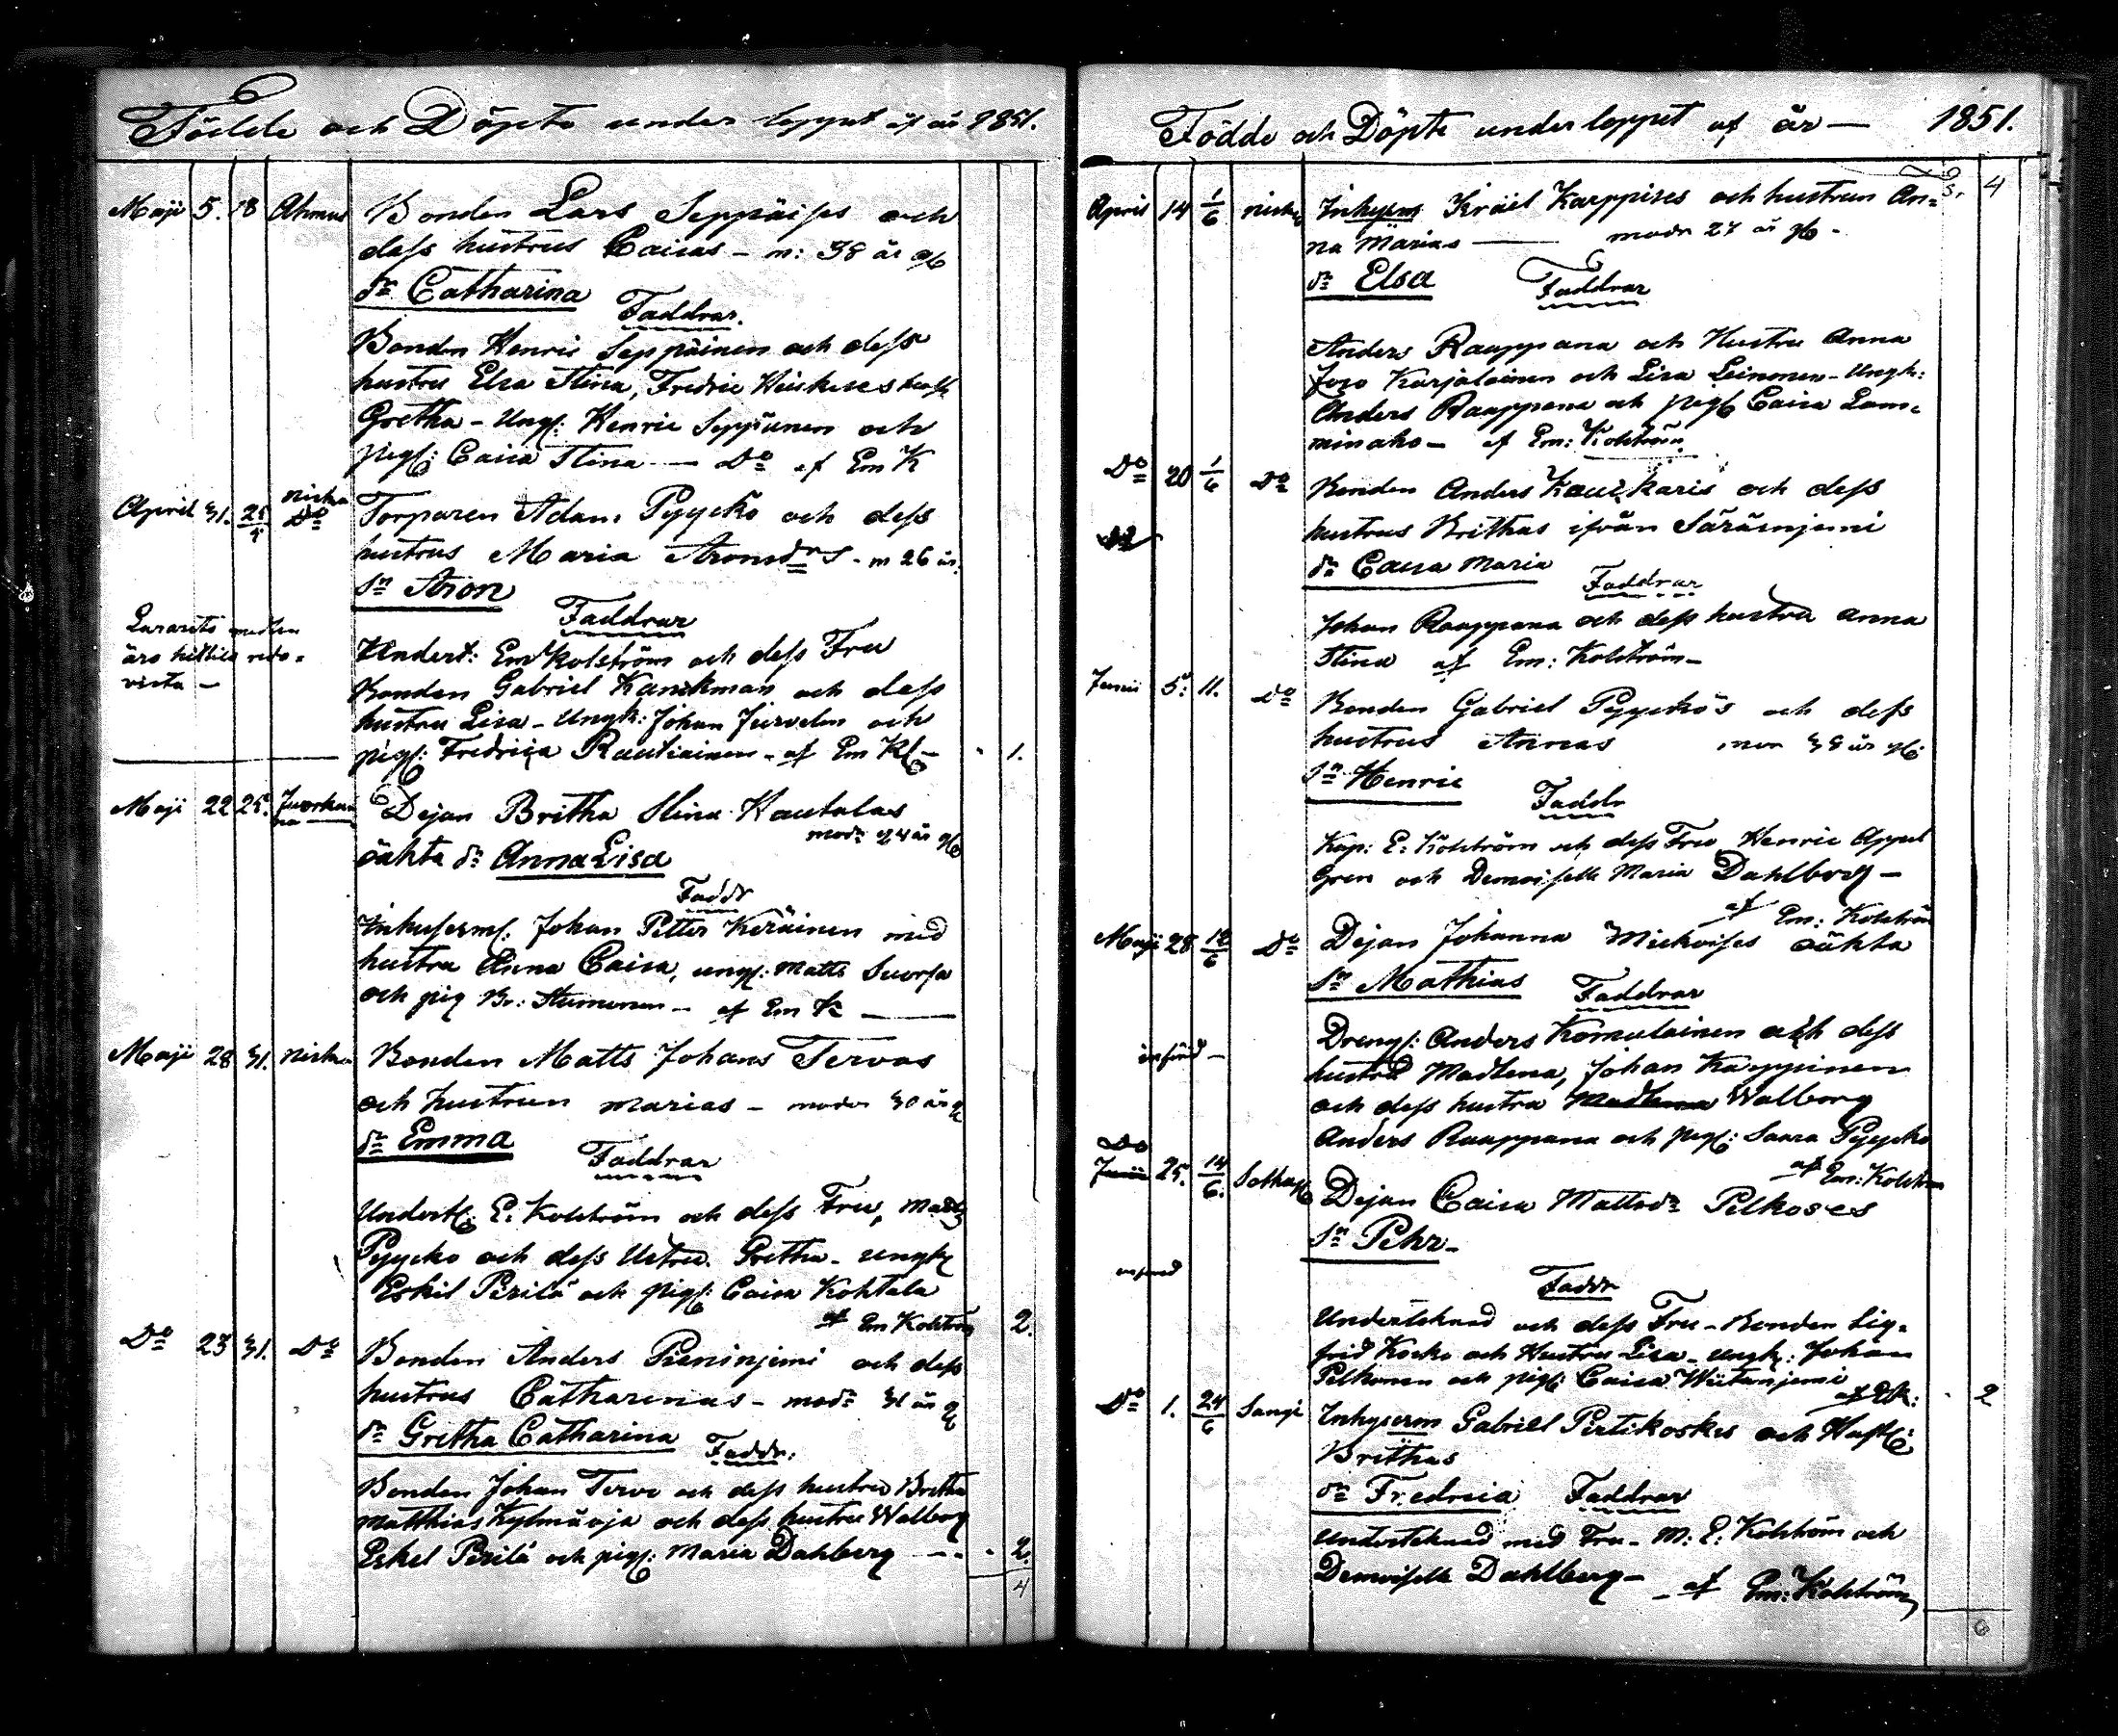 Födde och Döpte under loppet af år 1851.
Maji 5. 18 Ahmus Bonden Lars Seppäises och
dess hustrus Caisas - m: 38 år
dr Catharina
Faddrar.
Bonden Henric Seppäinen och dess
hustru Elsa Stina, Fredric
Gretha - Ungk: Henric Seppäinen och
pig: Caisa Stina - Do af Em K
April 31. 25 Niska Do Torparen Adam Pyycko och dess
hustrus Maria Aronsdrs - m 26 år.
Sn Aron
Faddrar
Lararets medlen
äro redo-
vista -
Undert: Em Kolström och dess Fru
Bonden Gabriel och dess
hustru Lisa - Ungk: Johan Jurvelin och
pig: Fredrica Rautiainen - af Em K - 1.
Maji 22 25. Dejan Britha Stina Hautalas
modr 24 år
oäkta dr Anna Lisa
Faddr
Inhysesm: Johan Petter Keräinen med
hustru Anna Caisa, ung: Matts Suorsa
och pig Br: - af Em K
Maji 28 31. Niska Bonden Matts Johans Tervos
och hustrun Marias - moder 30 år
dr Emma
Faddrar
Undert: E: Kolström och dess Fru,
Pyycko och dess Gretha - ungk
Eskil Perilä och pig: Caisa Kohtala
af Em Kolström 2.
Do 23 31. Do Bonden Anders Pieninjemi och dess
hustrus Catharinas - modr 31 år
dr Gretha Catharina
Faddr:
Bonden Johan Tervo och dess hustru Britha
Matthias Kylmäoja och dess hustru Walborg
Eskel Perilä och pig: Maria Dahlberg - - 2.
4
Födde och Döpte under loppet af år — 1851.
4
April 14 1/6 Niska Inhysesm Kråel Karppises och hustrun An=
na Marias — modr 27 år
dr Elsa
Faddrar
Anders Raappana och Hustru Anna
Karjalainen och Lisa Leinonen - Ungk:
Anders Raappana och pig Caisa Lam=
minaho - af Em: Kolström
Do 20 1/6 Do Bonden Anders och dess
hustrus Brithas ifrån Säräinjemi
dr Caisa Maria
Faddrar
Johan Raappana och dess hustru Anna
Stina af Em: Kolström -
Junii 5. 11. Do Bonden Gabriel Pyyckös och dess
hustrus Annas mor 38 år
Sn Henric
Faddr
Kap: E: Kolström och dess Fru Henric Appel
Gren och Demoiselle Maria Dahlberg -
af Em: Kolström
Maji 28 12/6 Do Dejan Johanna oäkta
Sn Mathias
Faddrar
införd - Dreng: Anders Komulainen och dess
hustru Madlena, Johan Karppinen
och dess hustru Madlena Walborg
Anders Raappana och pig: Saara Pyycko
af Em: Kolström
Do
Junii 25. 14/6. Dejan Caisa Mattsdr Pelkoses
Sn Pehr -
införd
Faddr
Underteknad och dess Fru - Bonden Sig=
frid Kocko och Hustru Lisa - ungk: Johan
Pelkonen och pig: Caisa Wiitanjemi
af EK: 2
Do 1. 24/6 Sangi Inhysesm Gabriel Pertikoskis och Hust:
Brithas
dr Fredrica Faddrar
Underteknad med Fru - M: E: Kolström och
Demoiselle Dahlberg - - af Em: Kolström
6